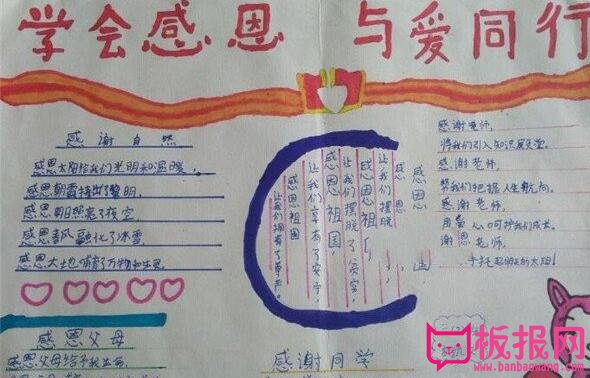 学会感恩 与爱同行
感谢自然
感恩太阳给我们光明和温暖,
感恩朝霞捧出了黎明,
感恩春风融化了冰雪,
感恩大地哺育了万物和生灵。
感恩父母
感恩父母给予我生命,
感恩
感恩
让我们摆脱
感恩祖国,
让我们摆脱了贫穷,
感恩祖国,
让我们享有了安宁,
感恩祖国
让我们拥有了尊严。
感谢老师,
将我们引入知识殿堂。
感谢老师,
帮我们把握人生航向。
感谢老师,
用爱心呵护我们成长。
谢恩老师,
手托起明天的太阳!
感谢同学
板报网
www.banbaowang.com